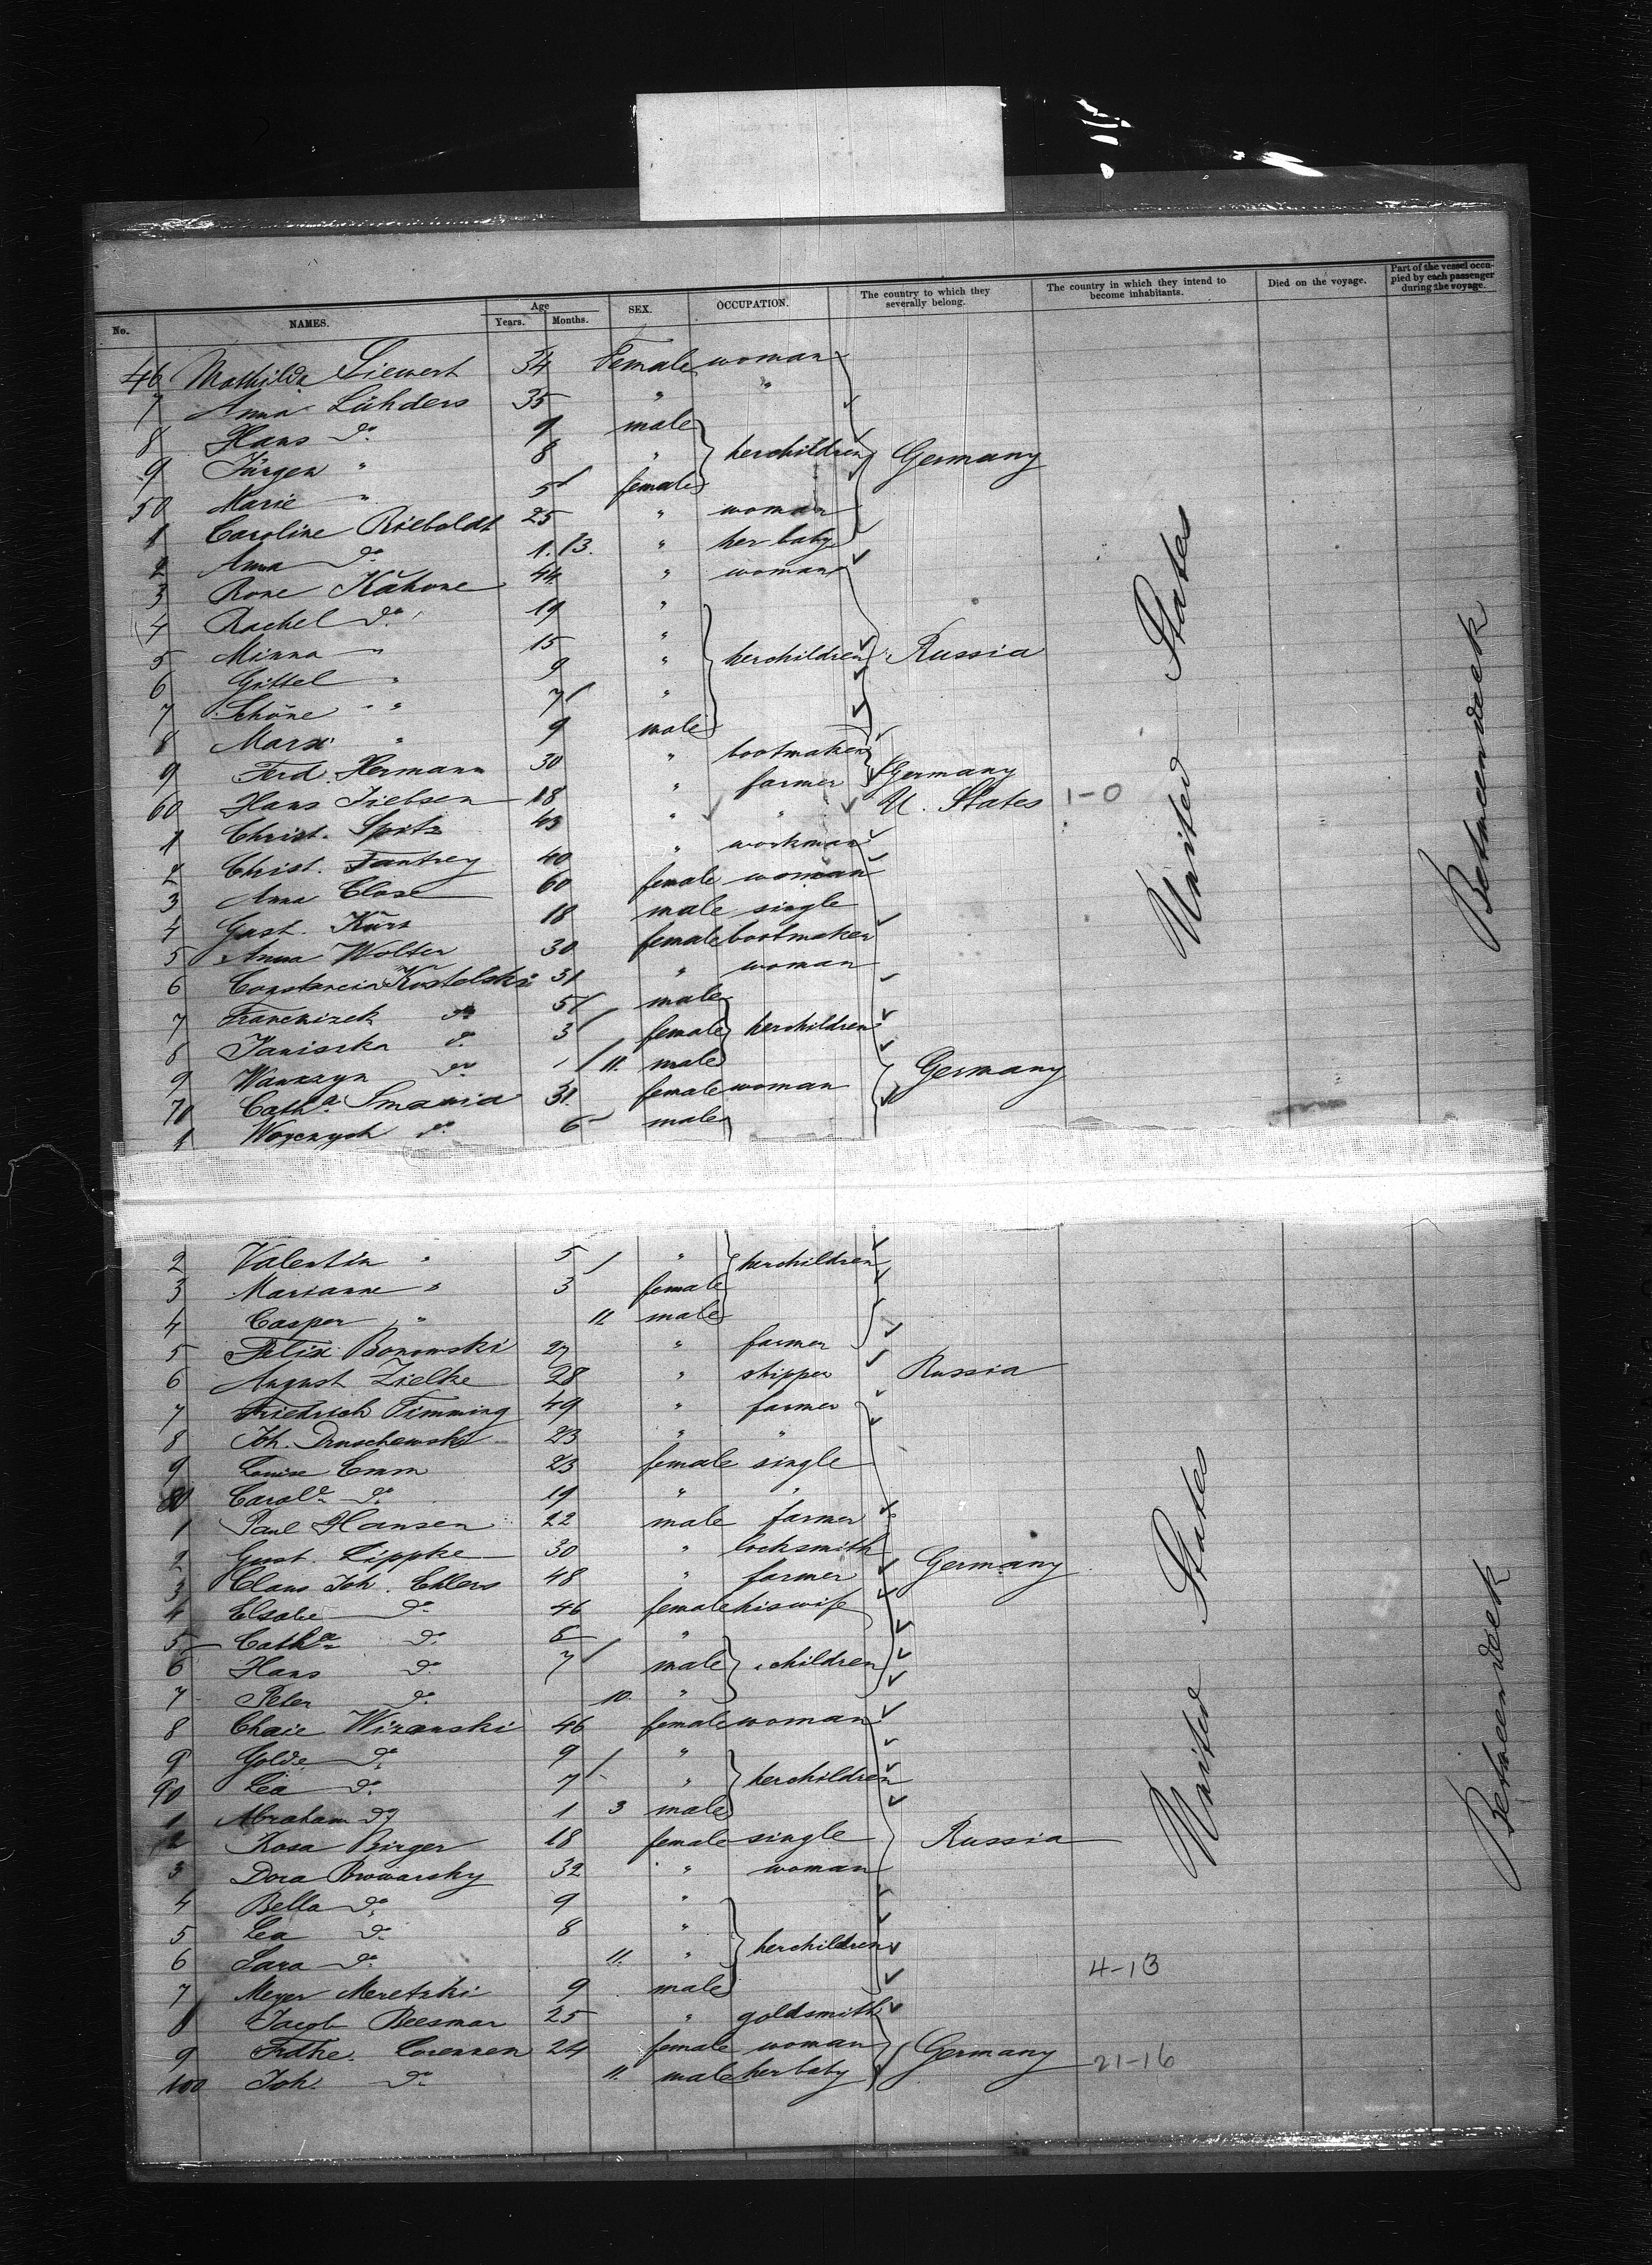 No. NAMES. Age Years. Months. SEX. OCCUPATION. The country to which they severally belong. The country in which they intend to become inhabitants. Died on the voyage. Part of the vessel occupied by each passenger during the voyage.
46 Mathilda Sievert 34 Female woman
7 Anna Lühders 35 " "
8 Hans do 9 male
9 Jürgen " 8 " her children Germany
50 Marie " 5 female
1 Caroline Rieboldt 25 " woman
2 Anna do 1. /3. " her baby
3 Rone Kahone 44 " woman
4 Rachel do 19 "
5 Minna " 15 "
6 Gittel " 9 " her children Russia
7 Schöne " 7 "
8 Marx " 9 male
9 Ferd. Hermann 30 " bootmaker
60 Hans Iiebsen 18 " farmer Germany
1 Christ. Spitz 43 " " U. States 1-0
2 Christ. Fantrey 40 " workman
3 Anna Close 60 female woman
4 Gust. Kürs 18 male single
5 Anna Wolter 30 female bootmaker
6 Constancia Kostelski 31 " woman
7 Franciszek do 5 male
8 Janiszka do 3 female her children
9 Wawrzyn do / 11. male
70 Catha Smania 31. female woman Germany
1 Woyczych do 6 male
2 Valentin " 5 " her children
3 Marianne " 3 female
4 Casper " 11. male
5 Felix Bonowski 27 " farmer
6 August Zielke 28 " shipper Russia
7 Friedrich Timming 49 " farmer
8 Joh. Druschewski 23 " "
9 Louise Emm 23 female single
80 Carole do 19 " "
1 Paul Hansen 22 male farmer
2 Gust. Lippke 30 " locksmith
3 Claus Joh. Ehlers 48 " farmer Germany
4 Elsabe do 46 female his wife
5 Catha do 8 "
6 Hans do 7 male children
7 Peter do 10. "
8 Chaie Wizanski 46 female woman
9 Golde do 9 "
90 Lea do 7 " her children
1 Abraham do 1 3 male
2 Rosa Birger 18 female single Russia
3 Dora Browarsky 32 " woman
4 Bella do 9 "
5 Lea do 8 "
6 Sara do 11. " her children 4-13
7 Meyer Meretzki 9 male
8 Jacob Beesmar 25 " goldsmith
9 Fdke. Lorenzen 24 female woman Germany 21-16
100 Joh. do 11. male her baby
United States
Betweendeck
United States
Betweendeck